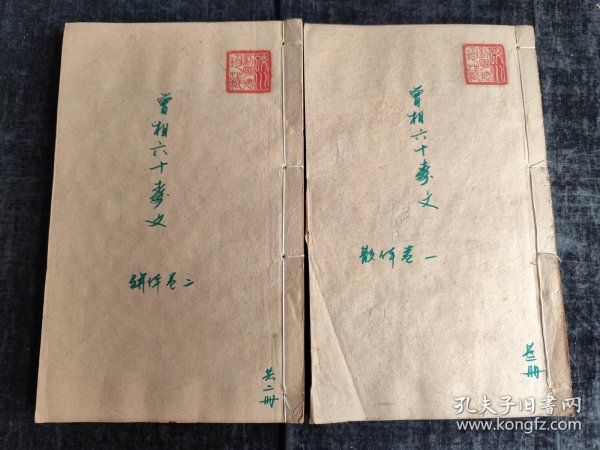 曾相六十寿文
散体卷一
共二册
曾相六十寿文
骈体卷二
共二册
孔夫子旧书网
www.kongfz.com